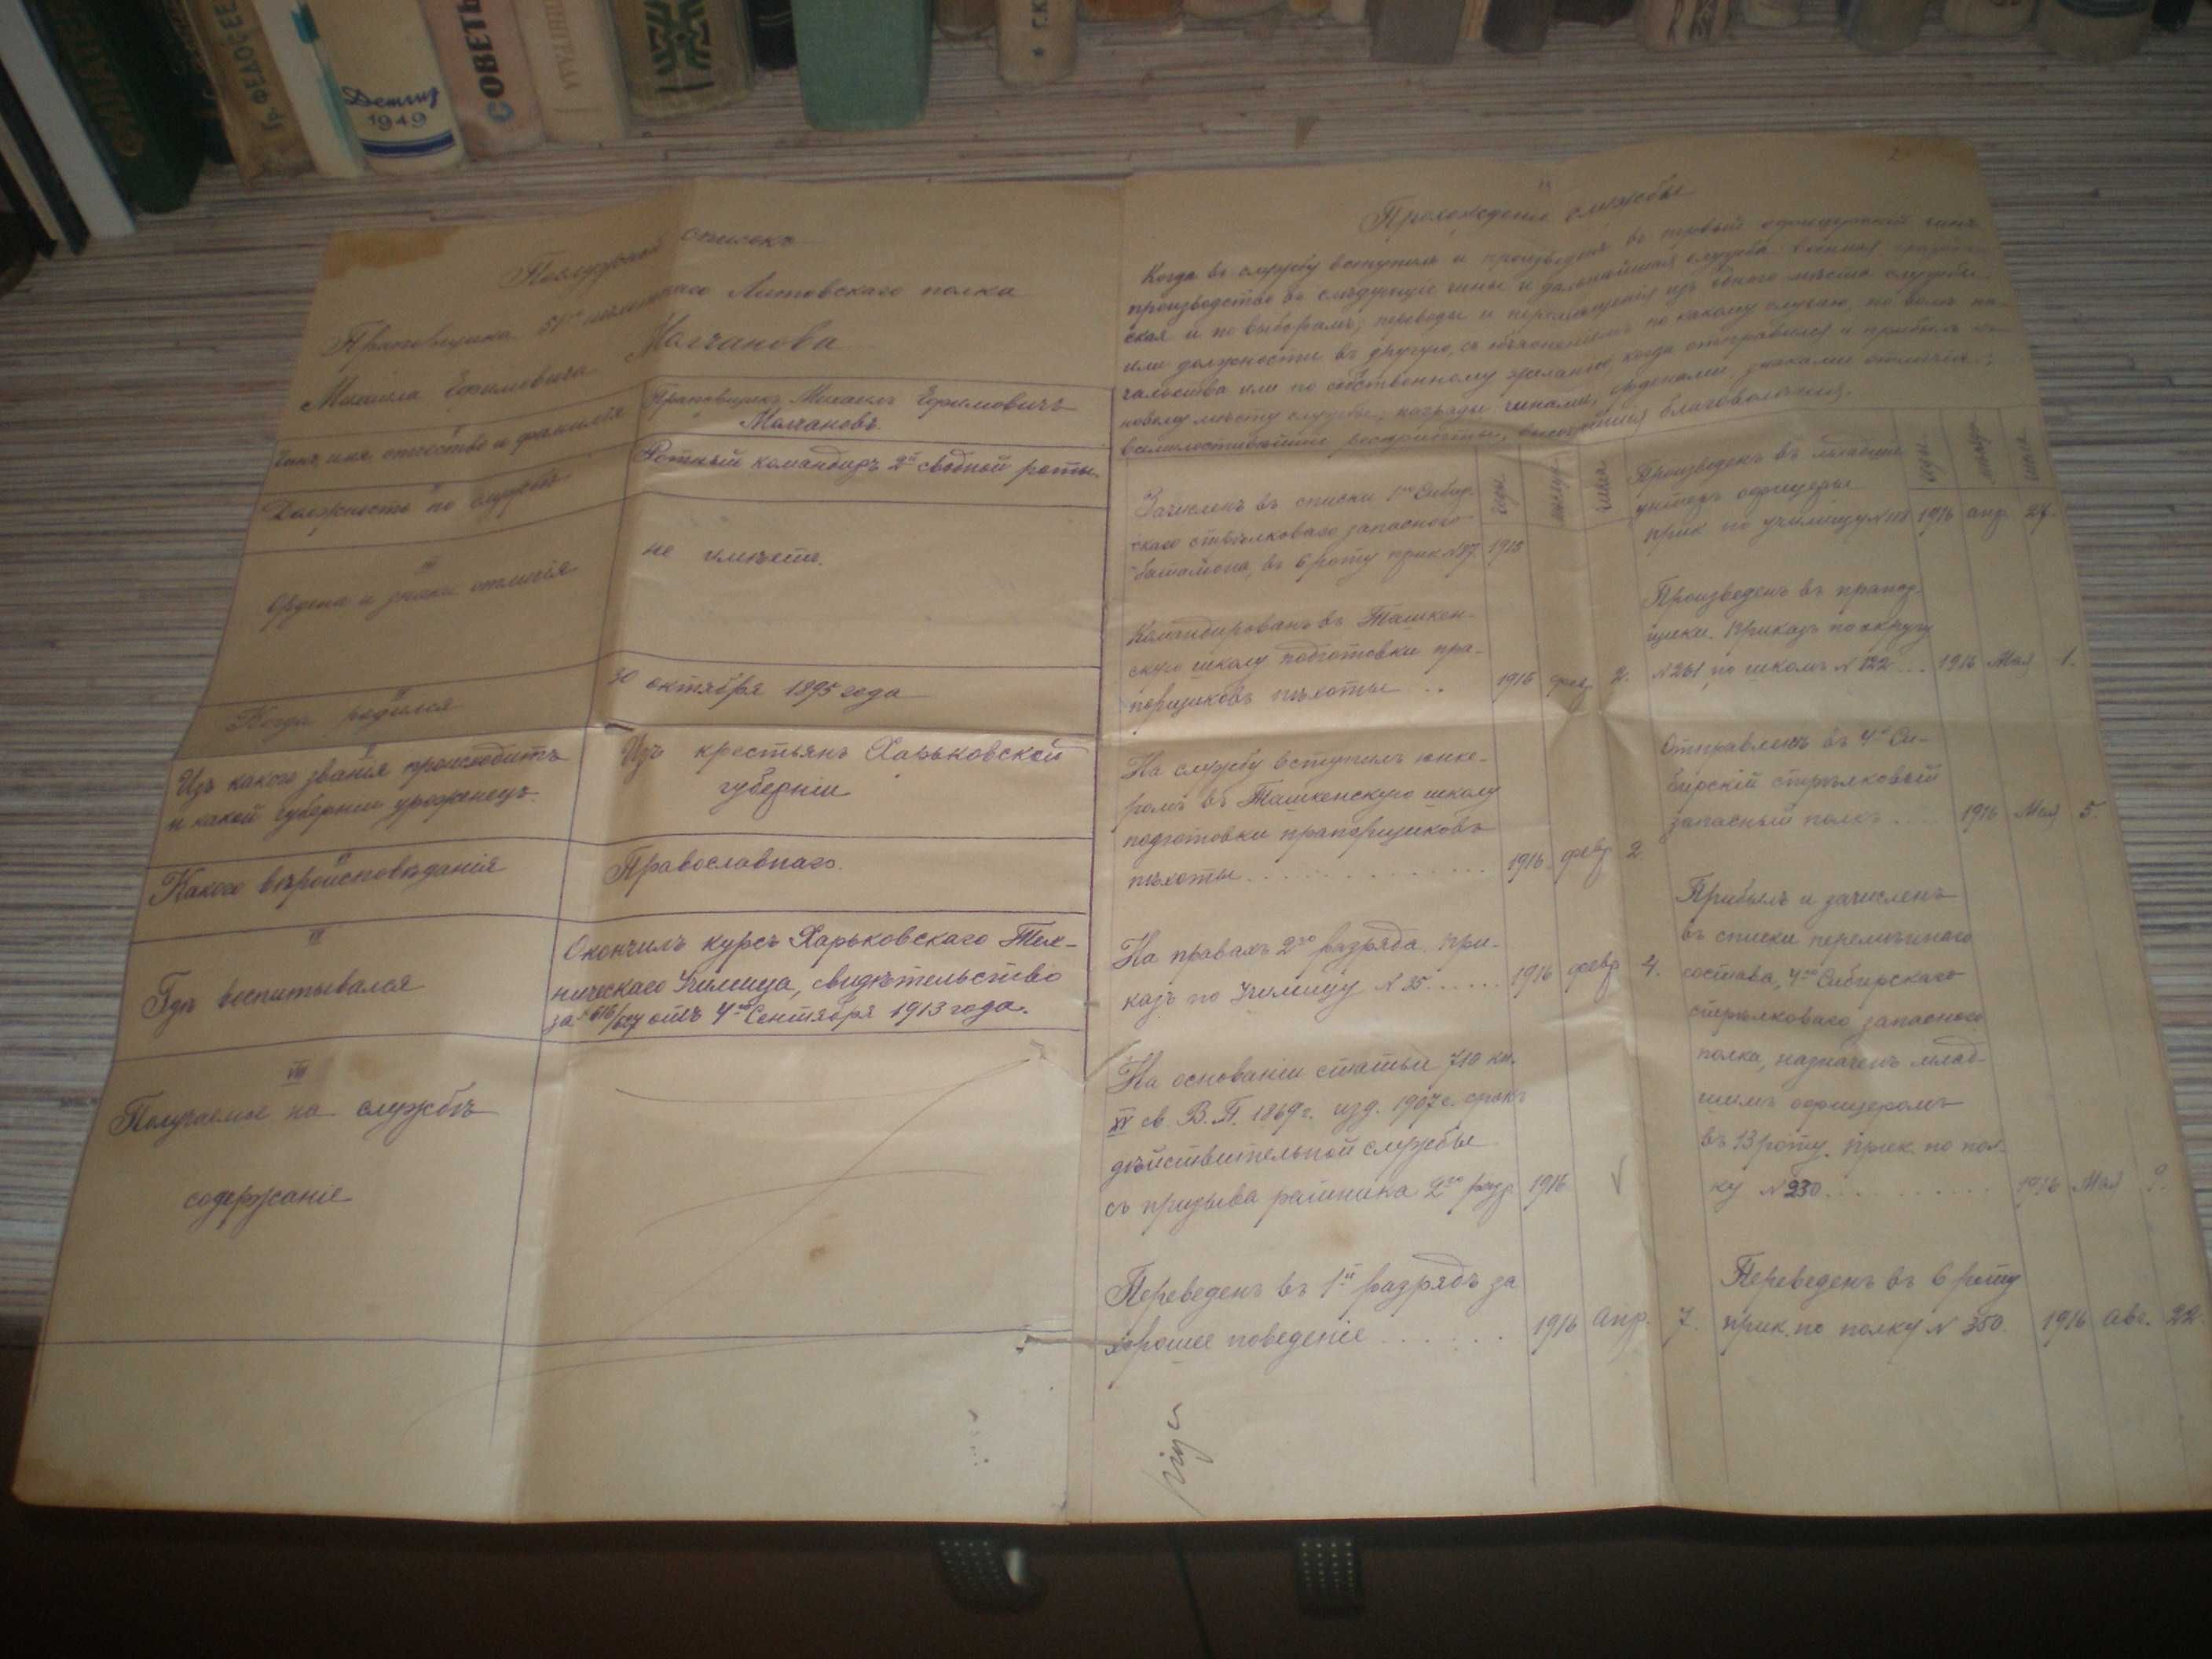 Гр. ФЕДОСЕЕ
Детгиз
1949
СОВЕТЬ
Г.К
Послужной списокъ
Прапорщика 51го пѣхотнаго Литовскаго полка
Михаила Ефимовича Молчанова
Чинъ, имя, отчество и фамилія
Прапорщикъ Михаилъ Ефимовичъ
Молчановъ.
II
Должность по службѣ
Ротный командиръ 2й сводной роты.
III
Ордена и знаки отличія
не имѣетъ.
IV
Когда родился
30 октября 1895 года
V
Изъ какого званія происходитъ
и какой губерніи уроженецъ.
Изъ крестьянъ Харьковской
губерніи
VI
Какого вѣроисповѣданія
Православнаго.
VII
Гдѣ воспитывался
Окончилъ курсъ Харьковскаго Тех-
ническаго Училища, свидѣтельство
за № 616/627 отъ 4го Сентября 1913 года.
VIII
Получаемое на службѣ
содержаніе
Прохожденіе службы
Когда въ службу вступилъ и произведенъ въ первый офицерскій чинъ
производство въ слѣдующіе чины и дальнѣйшая служба военная,
ская и по выборамъ; переводы и перемѣщенія изъ одного мѣста службы
или должности въ другую, съ объясненіемъ по какому случаю, по волѣ на-
чальства или по собственному желанію, когда отправился и прибылъ къ
новому мѣсту службы; награды чинами, орденами знаками отличія;
всемилостивѣйшіе рескрипты, высочайшія благоволенія.
Годы.
Мѣсяцъ
Числа.
Зачисленъ въ списки 1го Сибир-
скаго стрѣлковаго запасного
баталіона, въ 6 роту прик №87. 1915
Командированъ въ Ташкен-
скую школу подготовки пра-
порщиковъ пѣхоты .. 1916 февр 2.
На службу вступилъ юнке-
ромъ въ Ташкенскую школу
подготовки прапорщиковъ
пѣхоты .............. 1916 февр 2.
На правахъ 2го разряда при-
казъ по Училищу № 35...... 1916 февр 4.
На основаніи статьи 710 кн.
XV св В.П. 1869г. изд. 1907г. срокъ
дѣйствительной службы
съ призыва ратника 2го разр 1916
Переведенъ въ 1й разрядъ за
хорошее поведеніе ...... 1916 Апр. 7.
Годы.
Мѣсяцъ
Числа
Произведенъ въ младшіе
унтеръ офицеры
прик по училищу № 118 1916 апр. 27.
Произведенъ въ прапор-
щики. Приказъ по округу
№ 261 по школѣ № 122 ... 1916 Мая 1.
Отправленъ въ 4й Си-
бирскій стрѣлковый
запасный полкъ .... 1916 Мая 5.
Прибылъ и зачисленъ
въ списки перемѣннаго
состава, 4го Сибирскаго
стрѣлковаго запасного
полка, назначенъ млад-
шимъ офицеромъ
въ 13 роту. Прик. по пол-
ку № 230 .......... 1916 Мая
Переведенъ въ 6 роту
прик. по полку № 350. 1916 Авг. 22.